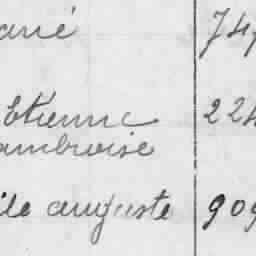 ané 74
Etienne 224
ambroise
ile auguste 909